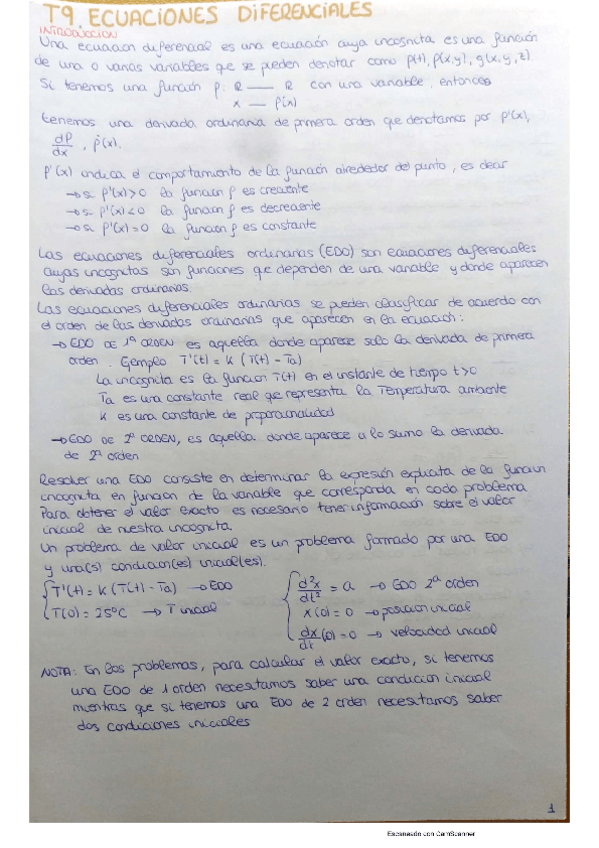 T9. ECUACIONES DIFERENCIALES
INTRODUCCION
Una ecuacion diferencial es una ecuación cuya incognita es una función
de una o varias variables que se pueden denotar como f(t), f(x,y), g(x,y,z).
Si tenemos una función f: R — R con una variable, entonces
x — f(x)
tenemos una derivada ordinaria de primera orden que denotamos por f'(x),
df/dx , ḟ(x).
f'(x) indica el comportamiento de la función alrededor del punto, es decir
→ si f'(x)>0 la función f es creciente
→ si f'(x)<0 la función f es decreciente
→ si f'(x)=0 la función f es constante
Las ecuaciones diferenciales ordinarias (EDO) son ecuaciones diferenciales
cuyas incognitas son funciones que dependen de una variable y donde aparecen
las derivadas ordinarias.
Las ecuaciones diferenciales ordinarias se pueden clasificar de acuerdo con
el orden de las derivadas ordinarias que aparecen en la ecuación:
→ EDO DE 1º ORDEN es aquella donde aparece solo la derivada de primera
orden. Ejemplo T'(t) = k (T(t) - Ta)
La incognita es la funcion T(t) en el instante de tiempo t>0
Ta es una constante real que representa la Temperatura ambiente
K es una constante de proporcionalidad
→ EDO DE 2º ORDEN, es aquella donde aparece a lo sumo la derivada
de 2º orden
Resolver una EDO consiste en determinar la expresión explicita de la funcion
incognita en función de la variable que corresponda en cada problema
Para obtener el valor exacto es necesario tener información sobre el valor
inicial de nuestra incognita.
Un problema de valor inicial es un problema formado por una EDO
y una(s) condicion(es) inicial(es).
T'(t) = k (T(t) - Ta) → EDO
T(0) = 25ºC → T inicial
d²x/dt² = a → EDO 2ª orden
x(0) = 0 → posicion inicial
dx/dt (0) = 0 → velocidad inicial
NOTA: En los problemas, para calcular el valor exacto, si tenemos
una EDO de 1 orden necesitamos saber una condicion inicial
mientras que si tenemos una EDO de 2 orden necesitamos saber
dos condiciones iniciales
1
Escaneado con CamScanner